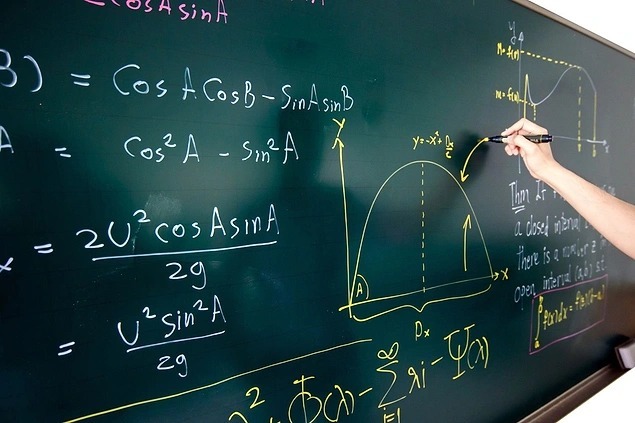 cosA sinA
B) = Cos A CosB - SinA sinB
A = Cos²A - Sin²A
x = 2U² cosA sinA / 2g
= U² sin²A / 2g
Y
y=-x²+Dx/2
A
X
Dx
λ² Φ(λ) - ∑ i=1 ∞ λi - Ψ(λ)
y
M=f(x)
m=f(x)
a
b
Thm
a closed interval
there is a number z in
open interval (a,b) s.t.
∫ a b f(x)dx = f(z)(b-a)